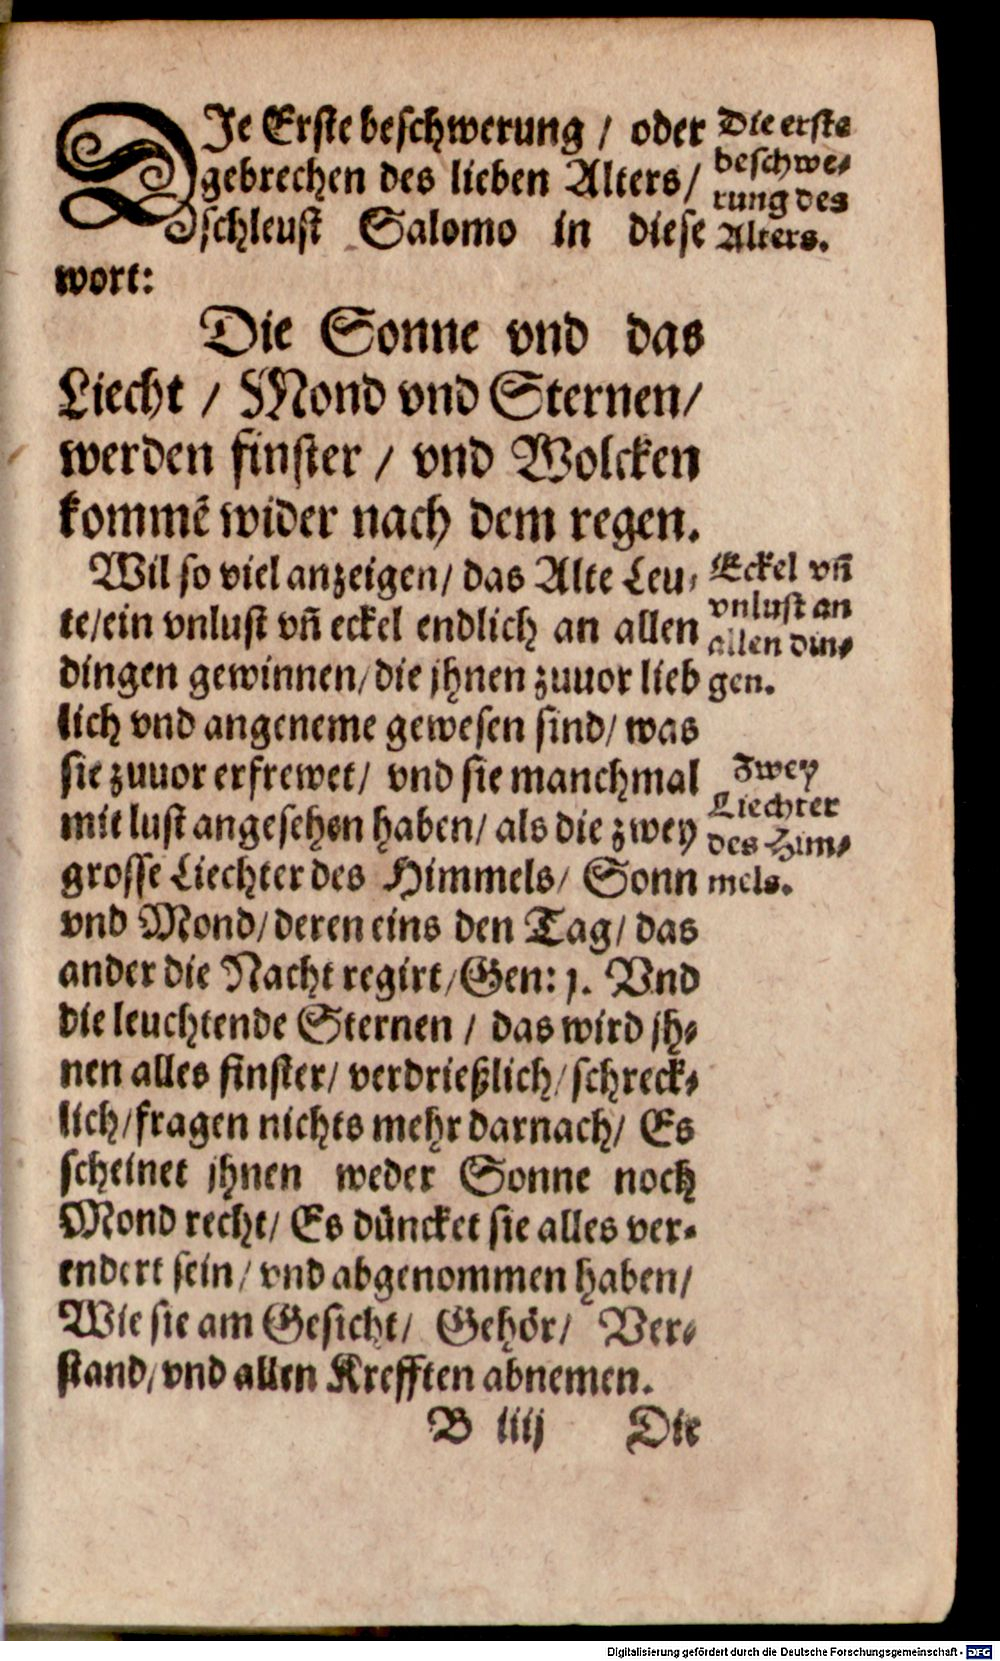 DIe Erste beschwerung / oder
gebrechen des lieben Alters/
schleust Salomo in diese
wort:
Die erste
beschwe-
rung des
Alters.
Die Sonne vnd das
Liecht / Mond vnd Sternen/
werden finster / vnd Wolcken
kommē wider nach dem regen.
Wil so viel anzeigen/ das Alte Leu-
te/ein vnlust vñ eckel endlich an allen
dingen gewinnen/die jhnen zuuor lieb
lich vnd angeneme gewesen sind/ was
sie zuuor erfrewet/ vnd sie manchmal
mit lust angesehen haben/ als die zwey
grosse Liechter des Himmels/ Sonn
vnd Mond/deren eins den Tag/ das
ander die Nacht regirt/Gen: 1. Vnd
die leuchtende Sternen / das wird jh-
nen alles finster/ verdrießlich/schreck-
lich/fragen nichts mehr darnach/ Es
scheinet jhnen weder Sonne noch
Mond recht/ Es düncket sie alles ver-
endert sein/vnd abgenommen haben/
Wie sie am Gesicht/ Gehör/ Ver-
stand/vnd allen Krefften abnemen.
Eckel vñ
vnlust an
allen din-
gen.
Zwey
Liechter
des Him-
mels.
B iiij Die
Digitalisierung gefördert durch die Deutsche Forschungsgemeinschaft - DFG